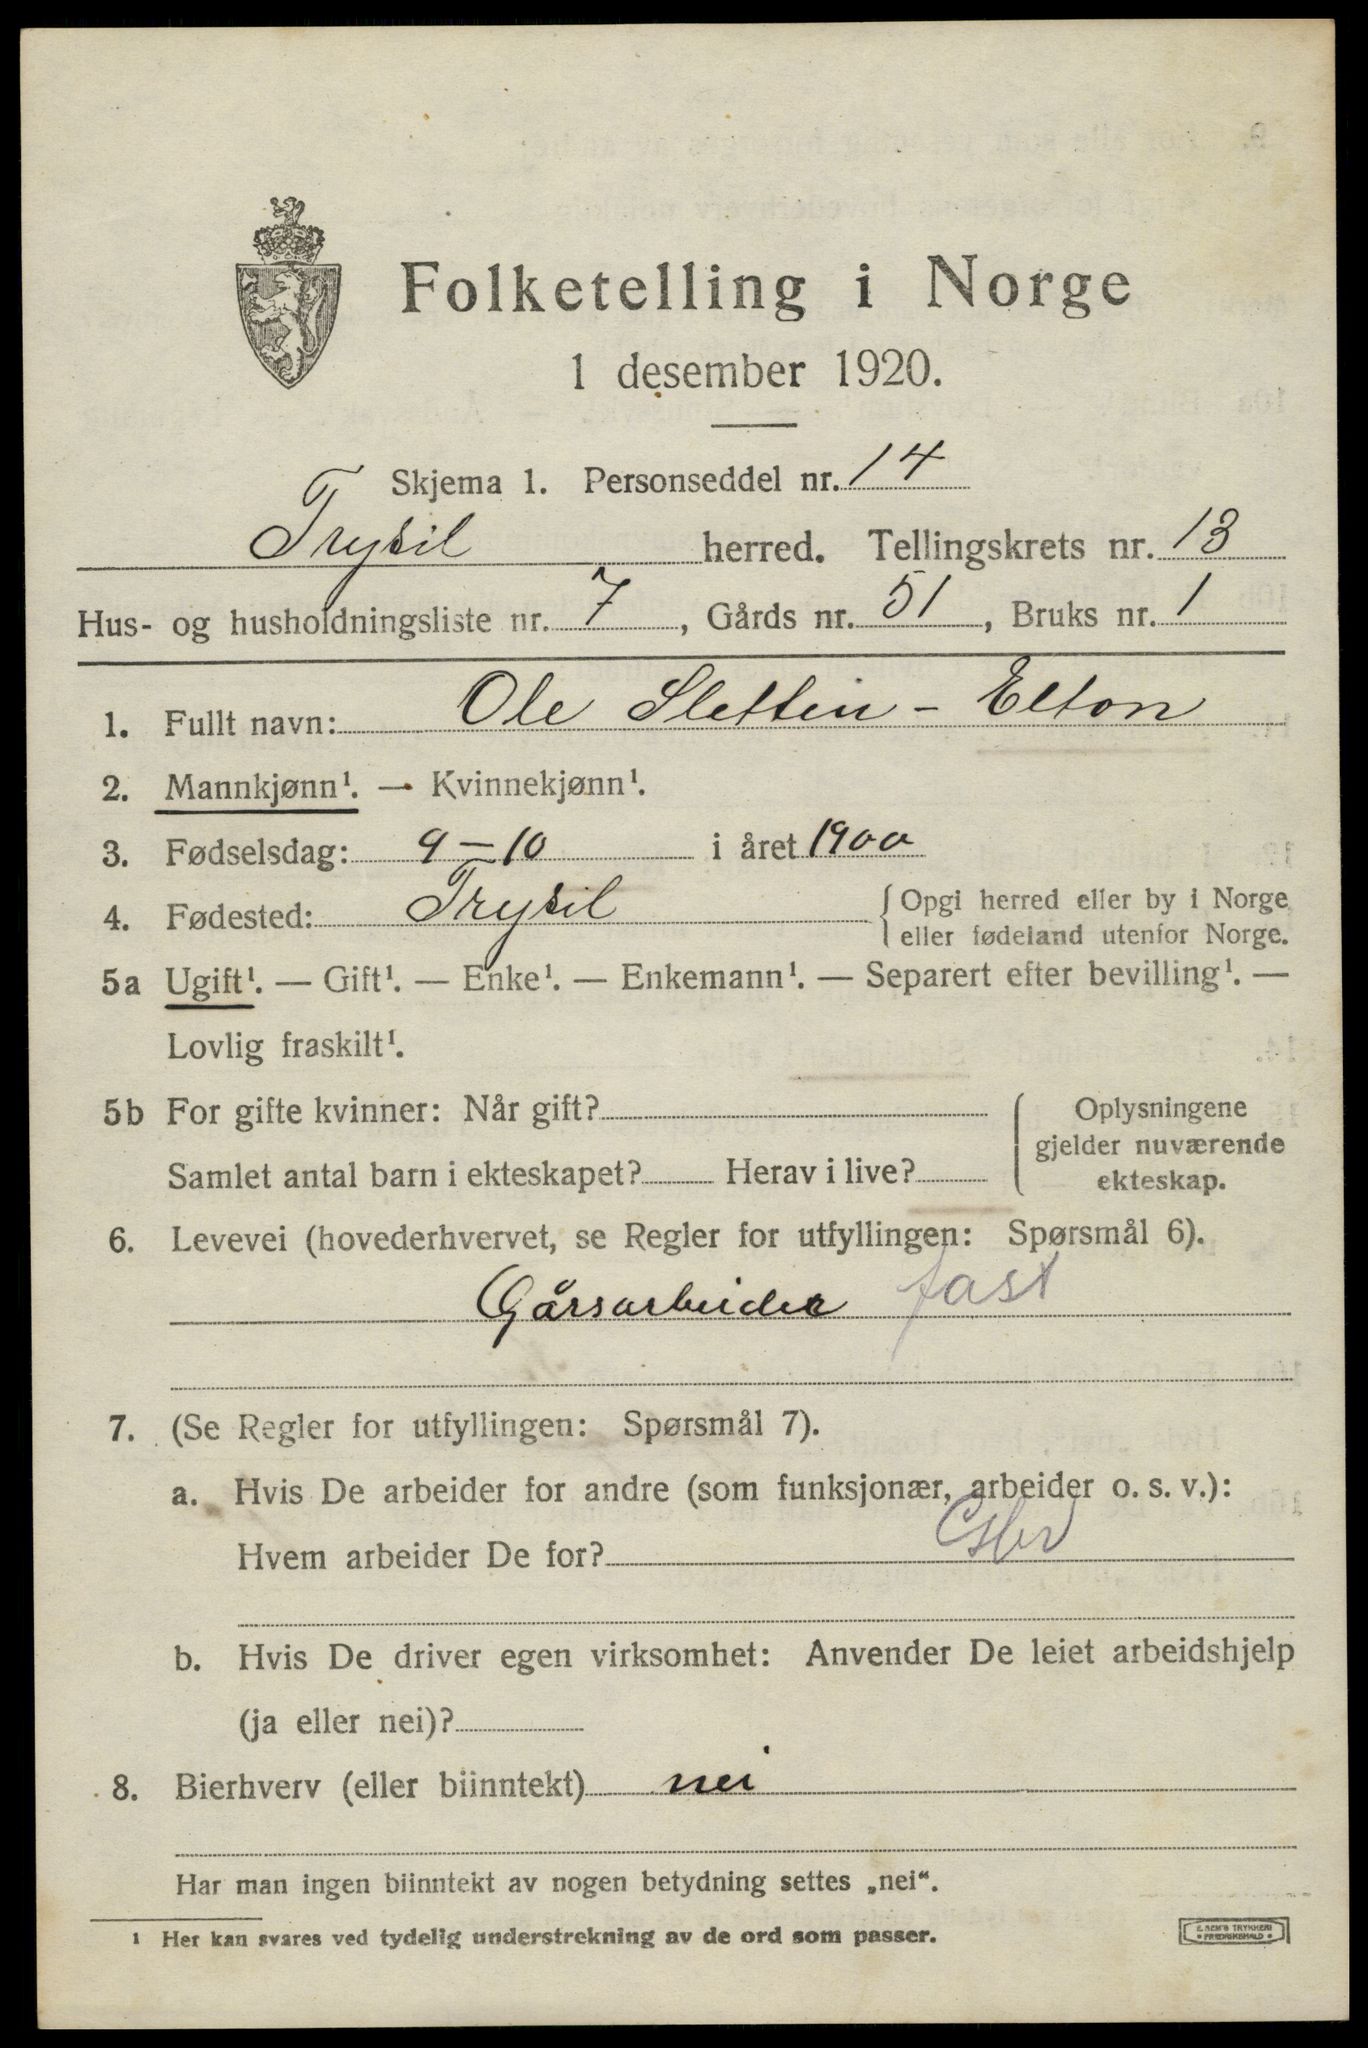 Folketelling i Norge
1 desember 1920.
Skjema 1. Personseddel nr. 14
Trysil herred. Tellingskrets nr. 13
Hus- og husholdningsliste nr. 7, Gårds nr. 51, Bruks nr. 1
1. Fullt navn: Ole Sletten - Elton
2. Mannkjønn¹. — Kvinnekjønn¹.
3. Fødselsdag: 9 – 10 i året 1900
4. Fødested: Trysil { Opgi herred eller by i Norge
eller fødeland utenfor Norge.
5a Ugift¹. — Gift¹. — Enke¹. — Enkemann¹. — Separert efter bevilling¹. —
Lovlig fraskilt¹.
5b For gifte kvinner: Når gift?
Samlet antal barn i ekteskapet? Herav i live?
Oplysningene
gjelder nuværende
ekteskap.
6. Levevei (hovederhvervet, se Regler for utfyllingen: Spørsmål 6).
Gårsarbeider fast
7. (Se Regler for utfyllingen: Spørsmål 7).
a. Hvis De arbeider for andre (som funksjonær, arbeider o. s. v.):
Hvem arbeider De for?
b. Hvis De driver egen virksomhet: Anvender De leiet arbeidshjelp
(ja eller nei)?
8. Bierhverv (eller biinntekt) nei
Har man ingen biinntekt av nogen betydning settes „nei“.
¹ Her kan svares ved tydelig understrekning av de ord som passer.
E. SEM'S TRYKKERI
FREDRIKSHALD